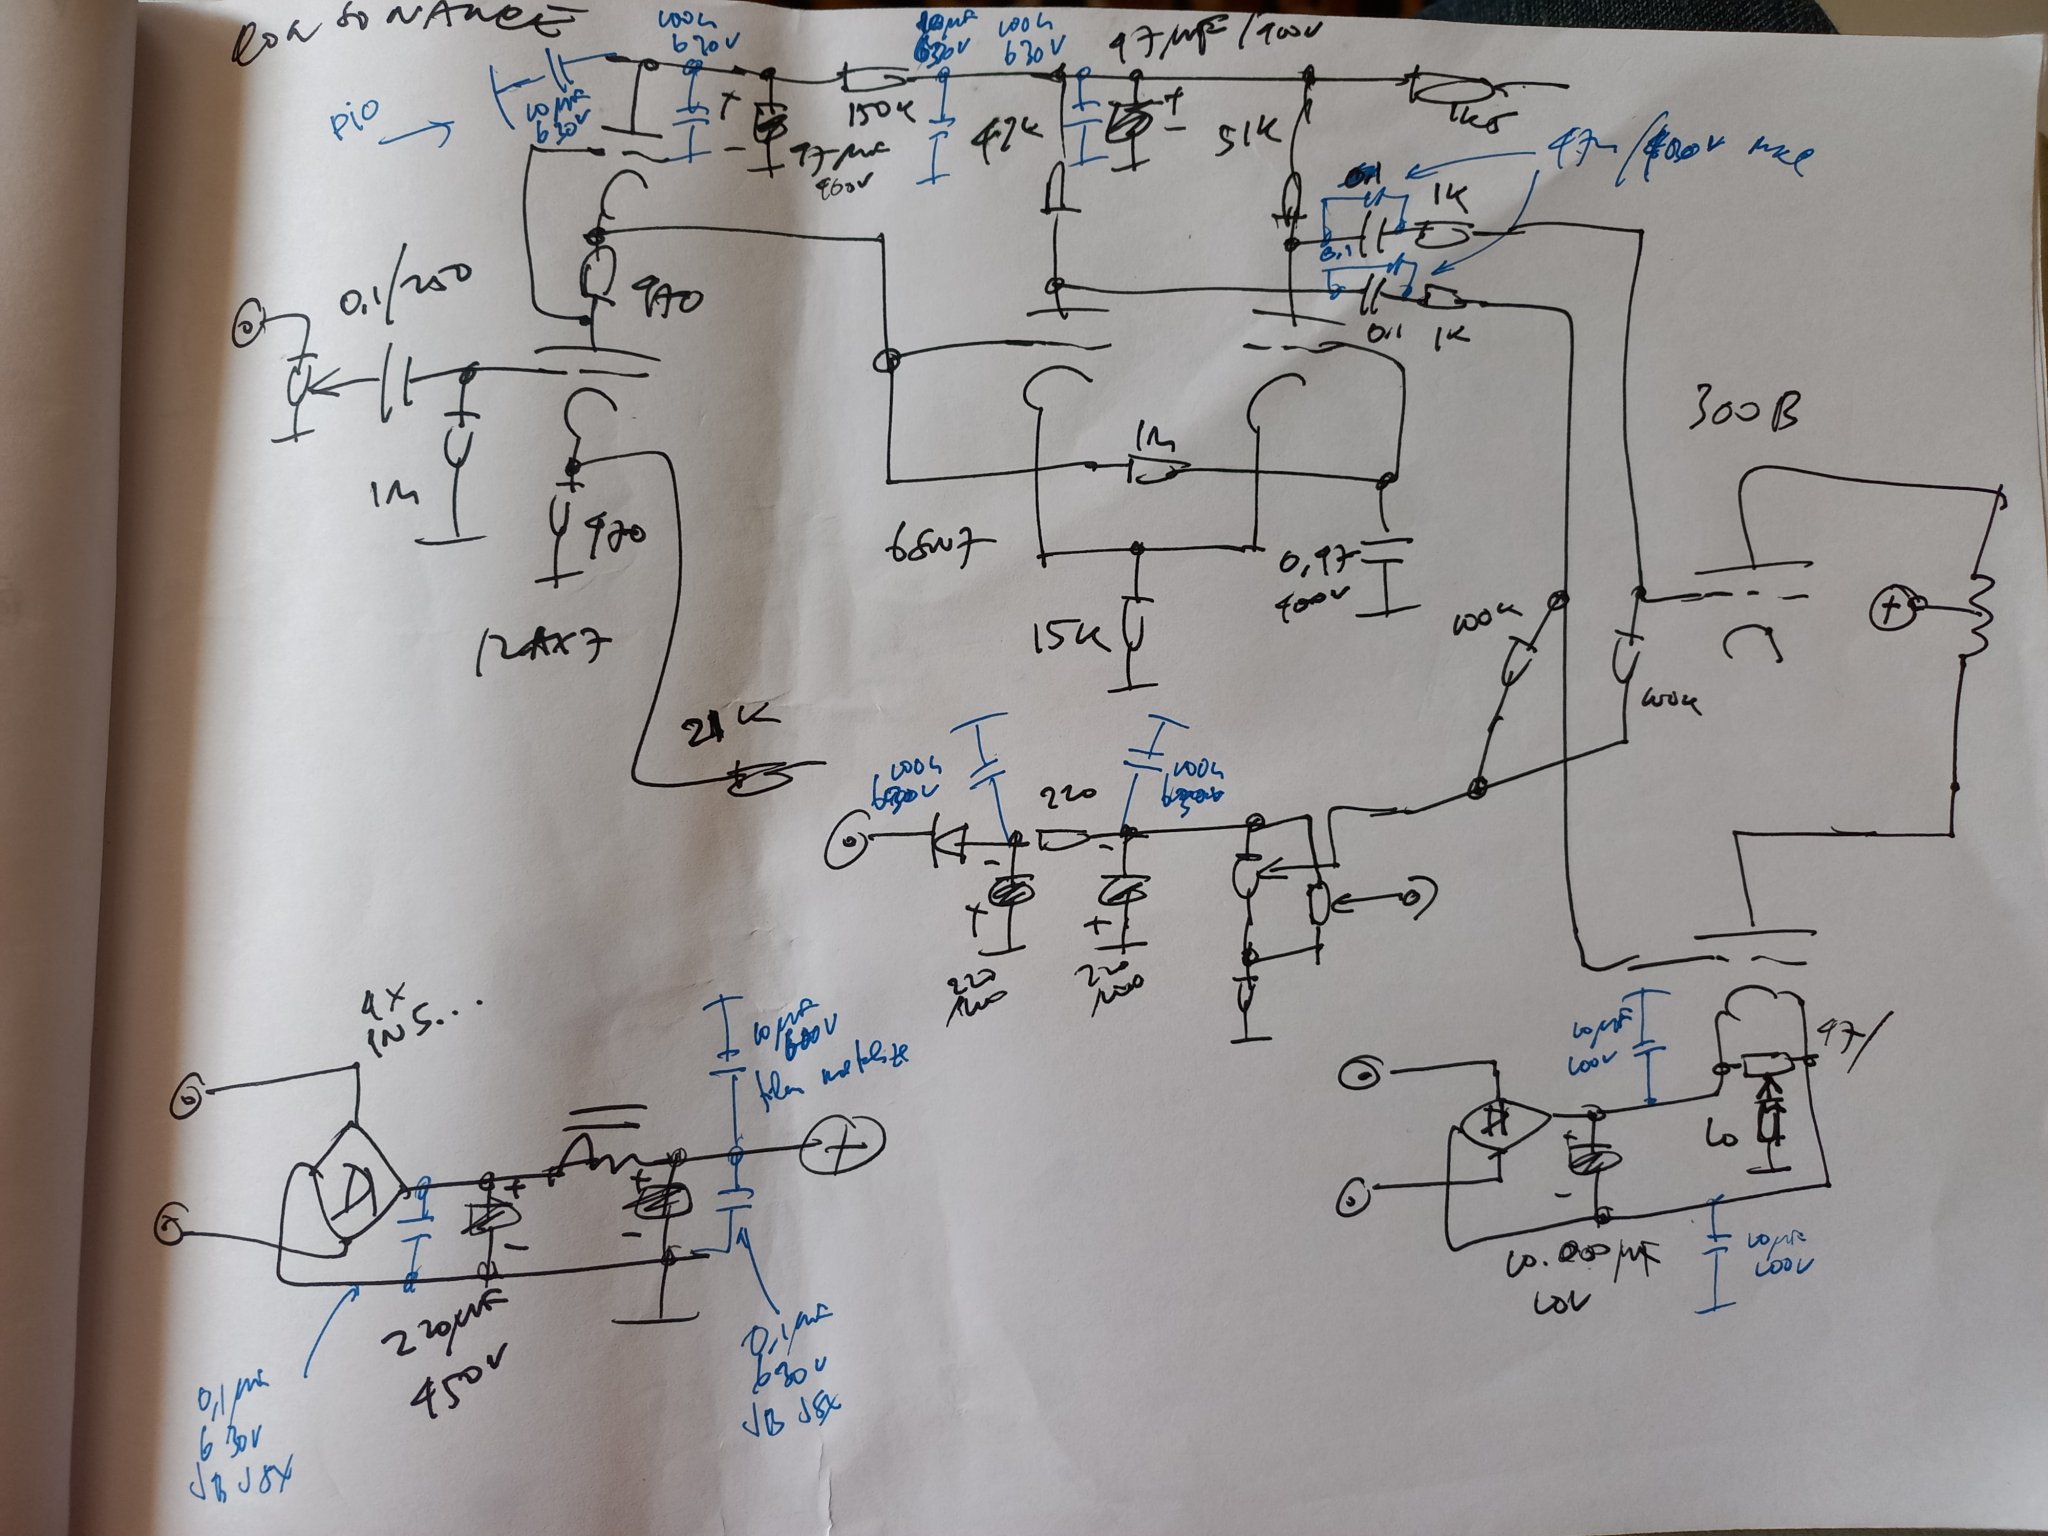 CONSONANCE
100n
630V
630V
100n
630V
47µF/400V
PiO
10µF
630V
150K
47K
51K
1K5
47µF
400V
0,1
1K
0,1/250
470
0,1
0,1
1K
300B
1M
1M
470
6SN7
0,47
400V
12AX7
15K
100K
100K
21K
100n
630V
220
100n
220
220
4X
1N5...
10µF
film
10µF
100V
47/
10
10.000µF
10V
10µF
100V
220µF
450V
0,1µF
630V
JB JSX
0,1µF
630V
JB JSX